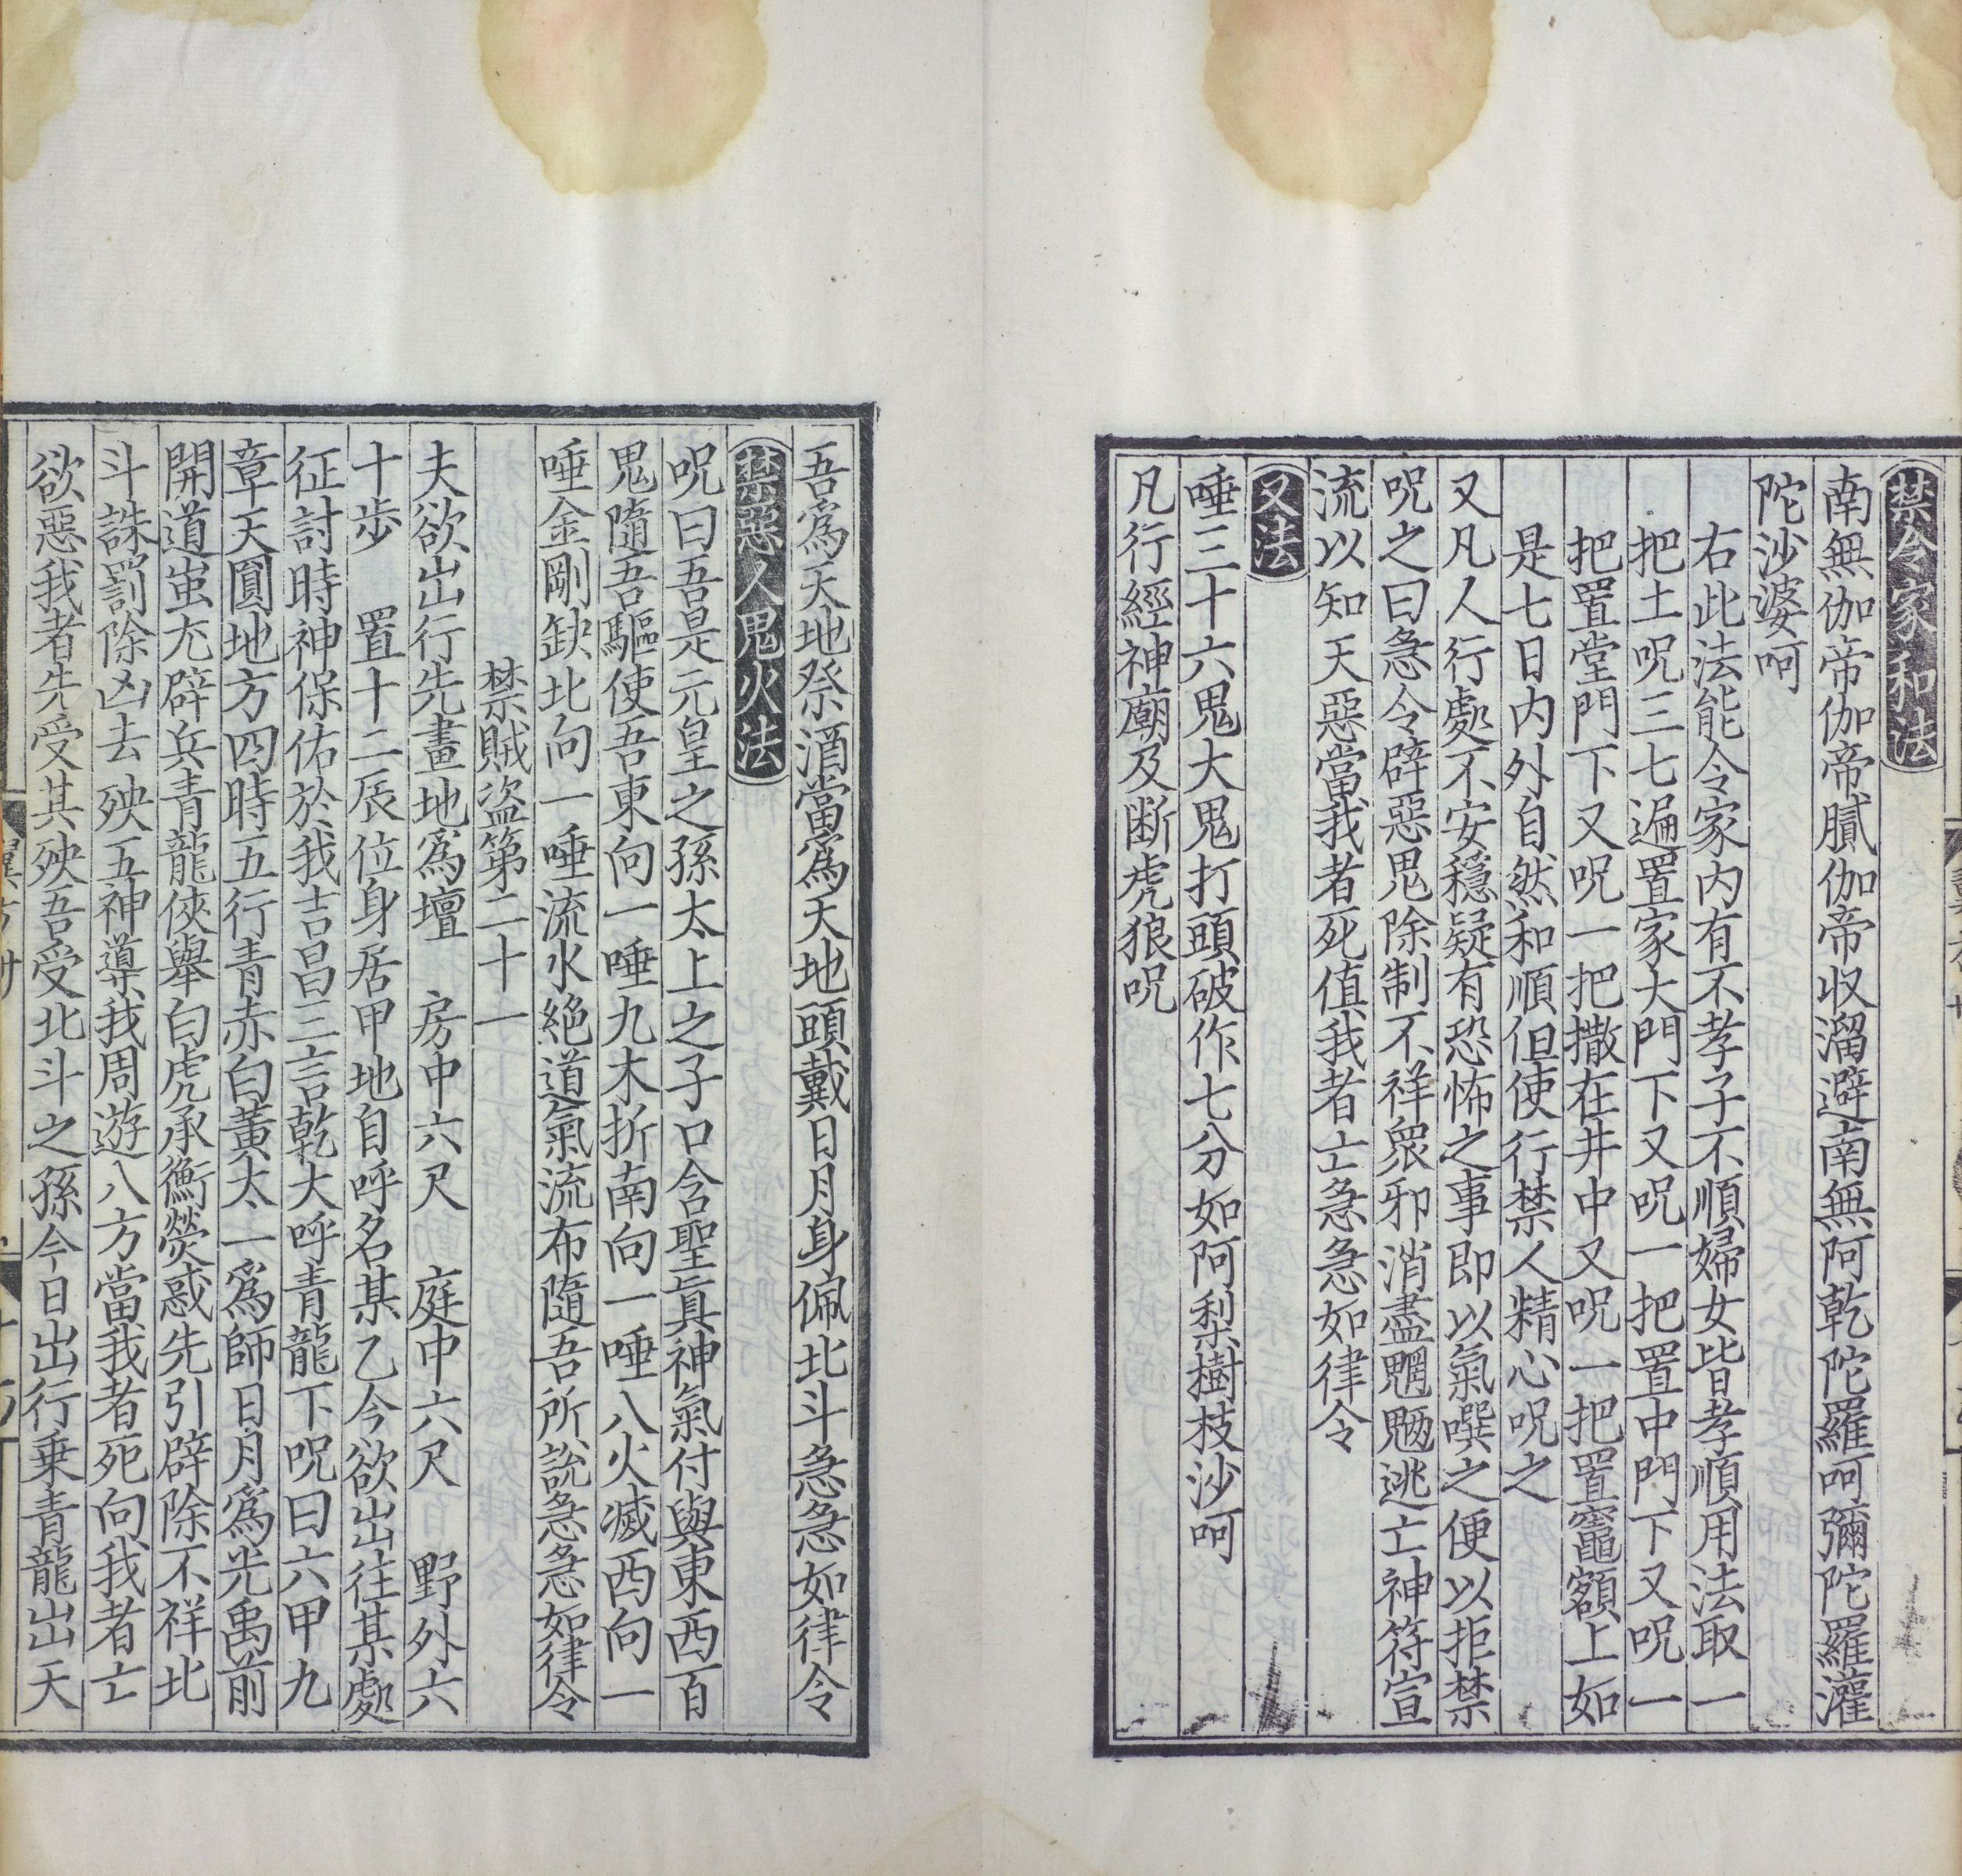 禁令家和法
南無伽帝伽帝膩伽帝収溜避南無阿乾陀羅呵彌陀羅灌
陀沙婆呵
右此法能令家内有不孝子不順婦女皆孝順用法取一
把土呪三七遍置家大門下又呪一把置中門下又呪一
把置堂門下又呪一把撒在井中又呪一把置竈額上如
是七日内外自然和順但使行禁人精心呪之
又凡人行處不安穩疑有恐怖之事即以氣噀之便以拒禁
呪之曰急令辟惡鬼除制不祥衆邪消盡魍魎逃亡神符宣
流以知天惡當我者死值我者亡急急如律令
又法
唾三十六鬼大鬼打頭破作七分如阿梨樹枝沙呵
凡行經神廟及断虎狼呪
吾爲天地祭酒當爲天地頭戴日月身佩北斗急急如律令
禁惡人鬼火法
呪曰吾是元皇之孫太上之子口含聖眞神氣付與東西百
鬼隨吾驅使吾東向一唾九木折南向一唾八火滅西向一
唾金剛缺北向一唾流水絶道氣流布隨吾所說急急如律令
禁賊盗第二十一
夫欲出行先畫地爲壇　房中六尺　庭中六尺　野外六
十步　置十二辰位身居甲地自呼名某乙今欲出往某處
征討時神保佑於我吉昌三言乾大呼青龍下呪曰六甲九
章天圓地方四時五行青赤白黃太一爲師日月爲光禹前
開道蚩尤辟兵青龍俠舉白虎承衡熒惑先引辟除不祥北
斗誅罰除凶去殃五神導我周遊八方當我者死向我者亡
欲惡我者先受其殃吾受北斗之孫今日出行乗青龍出天